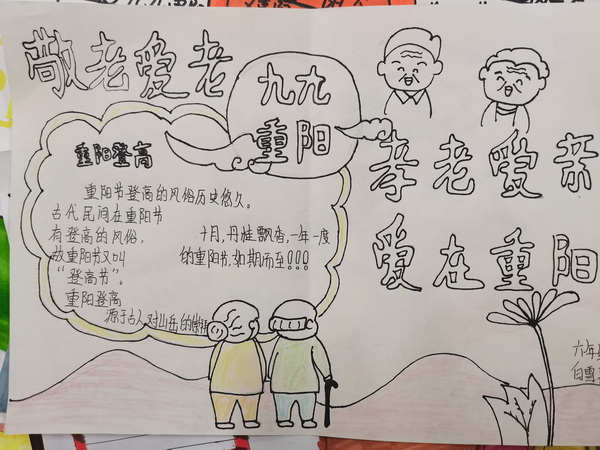 敬老爱老
九九
重阳
孝老爱亲
爱在重阳
重阳登高
重阳节登高的风俗历史悠久。
古代民间在重阳节
有登高的风俗,
故重阳节又叫
“登高节”。
重阳登高
源于古人对山岳的崇拜
十月,丹桂飘香,一年一度
的重阳节,如期而至!!!
六年
白雪